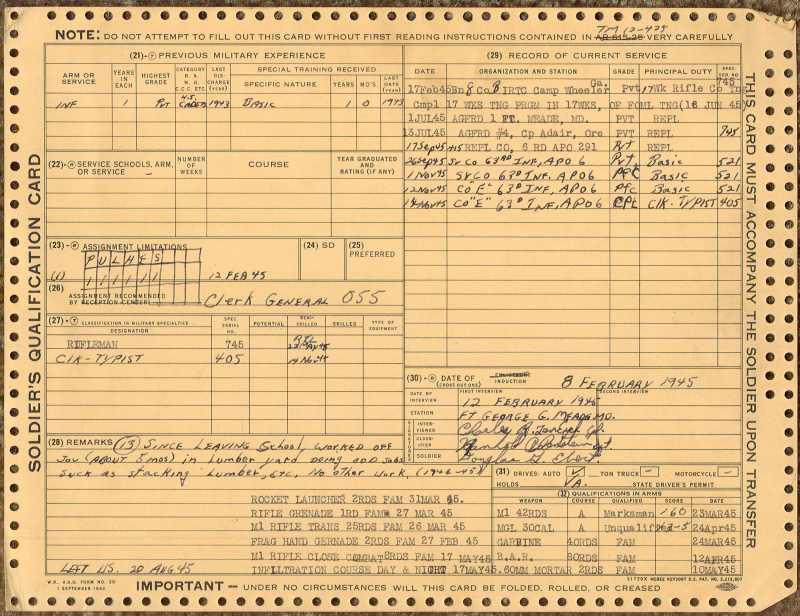 TM 12-425
NOTE: DO NOT ATTEMPT TO FILL OUT THIS CARD WITHOUT FIRST READING INSTRUCTIONS CONTAINED IN AR 615-25 VERY CAREFULLY
SOLDIER'S QUALIFICATION CARD
THIS CARD MUST ACCOMPANY THE SOLDIER UPON TRANSFER
(21) PREVIOUS MILITARY EXPERIENCE
ARM OR SERVICE
YEARS IN EACH
HIGHEST GRADE
CATEGORY R. A. N. G. C.C.C. ETC.
LAST DIS-CHARGE (YEAR)
SPECIAL TRAINING RECEIVED
SPECIFIC NATURE YEARS MO'S. LAST DATE (YEAR)
INF 1 Pvt H.S. CADETS 1943 Basic 1 0 1943
(22) SERVICE SCHOOLS, ARM, OR SERVICE -
NUMBER OF WEEKS
COURSE
YEAR GRADUATED AND RATING (IF ANY)
(23) ASSIGNMENT LIMITATIONS
PULHES
(1) 111111 12 FEB 45
(24) SD
(25) PREFERRED
(26) ASSIGNMENT RECOMMENDED BY RECEPTION CENTER
Clerk General 055
(27) CLASSIFICATION IN MILITARY SPECIALTIES
DESIGNATION SPEC. SERIAL NO. POTENTIAL SEMI-SKILLED SKILLED TYPE OF EQUIPMENT
RIFLEMAN 745
Clk-TYPIST 405 14 Nov 45
(28) REMARKS (13) SINCE LEAVING School, WORKED OFF
Jov (ABOUT 8 mos) in Lumber yard doing odd jobs
Suck as stacking Lumber, etc. No other work. (1940-45)
ROCKET LAUNCHER 2RDS FAM 31MAR 45.
RIFLE GRENADE 1RD FAM 27 MAR 45
M1 RIFLE TRANS 25RDS FAM 26 MAR 45
FRAG HAND GERNADE 2RDS FAM 27 FEB 45
M1 RIFLE CLOSE COMBAT 8RDS FAM 17 MAY45
INFILTRATION COURSE DAY & NIGHT 17MAY45.
LEFT U.S. 20 AUG 45
(29) RECORD OF CURRENT SERVICE
DATE ORGANIZATION AND STATION GRADE PRINCIPAL DUTY SPEC. SER. NO.
17Feb45 Bn 8 Co B IRTC Camp Wheeler Ga. Pvt. 17Wk Rifle Co Tng 745
Cmpl 17 WKS TNG PRGM IN 17WKS, OF FOML TNG(16 JUN 45)
1JUL45 AGFRD 1 FT. MEADE, MD. PVT REPL
13JUL45 AGFRD #4, Cp Adair, Ore PVT REPL 745
17Sep45 REPL CO, 6 RD APO 291 Pvt REPL
26Sep45 SV Co 63RD INF, APO 6 Pvt. Basic 521
1 Nov45 SV CO 63D INF, APO 6 Pfc Basic 521
12 Nov45 CO E" 63D INF, APO 6 Pfc Basic 521
14 Nov45 Co "E" 63D INF, APO 6 Cpl Clk-TYPIST 405
(30) DATE OF INDUCTION 8 FEBRUARY 1945
(CROSS OUT ONE)
DATE OF INTERVIEW FIRST INTERVIEW SECOND INTERVIEW
12 FEBRUARY 1945
STATION FT GEORGE G. MEADE MD.
SIGNATURES
INTER-VIEWER
CLASSI-FIER
SOLDIER
(31) DRIVES: AUTO ✓ TON TRUCK - MOTORCYCLE -
HOLDS VA. STATE DRIVER'S PERMIT
(32) QUALIFICATIONS IN ARMS
WEAPON COURSE QUALIFIED SCORE DATE
M1 42RDS A Marksman 160 23MAR45
MGL 30CAL A Unqualified 24Apr45
CARBINE 40RDS FAM 24MAR45
B.A.R. 80RDS FAM 12APR45
60MM MORTAR 2RDS FAM 10MAY45
W.D., A.G.O. FORM NO. 20
1 SEPTEMBER 1942
IMPORTANT — UNDER NO CIRCUMSTANCES WILL THIS CARD BE FOLDED, ROLLED, OR CREASED
MCBEE KEYSORT U.S. PAT. NO. 2,213,807